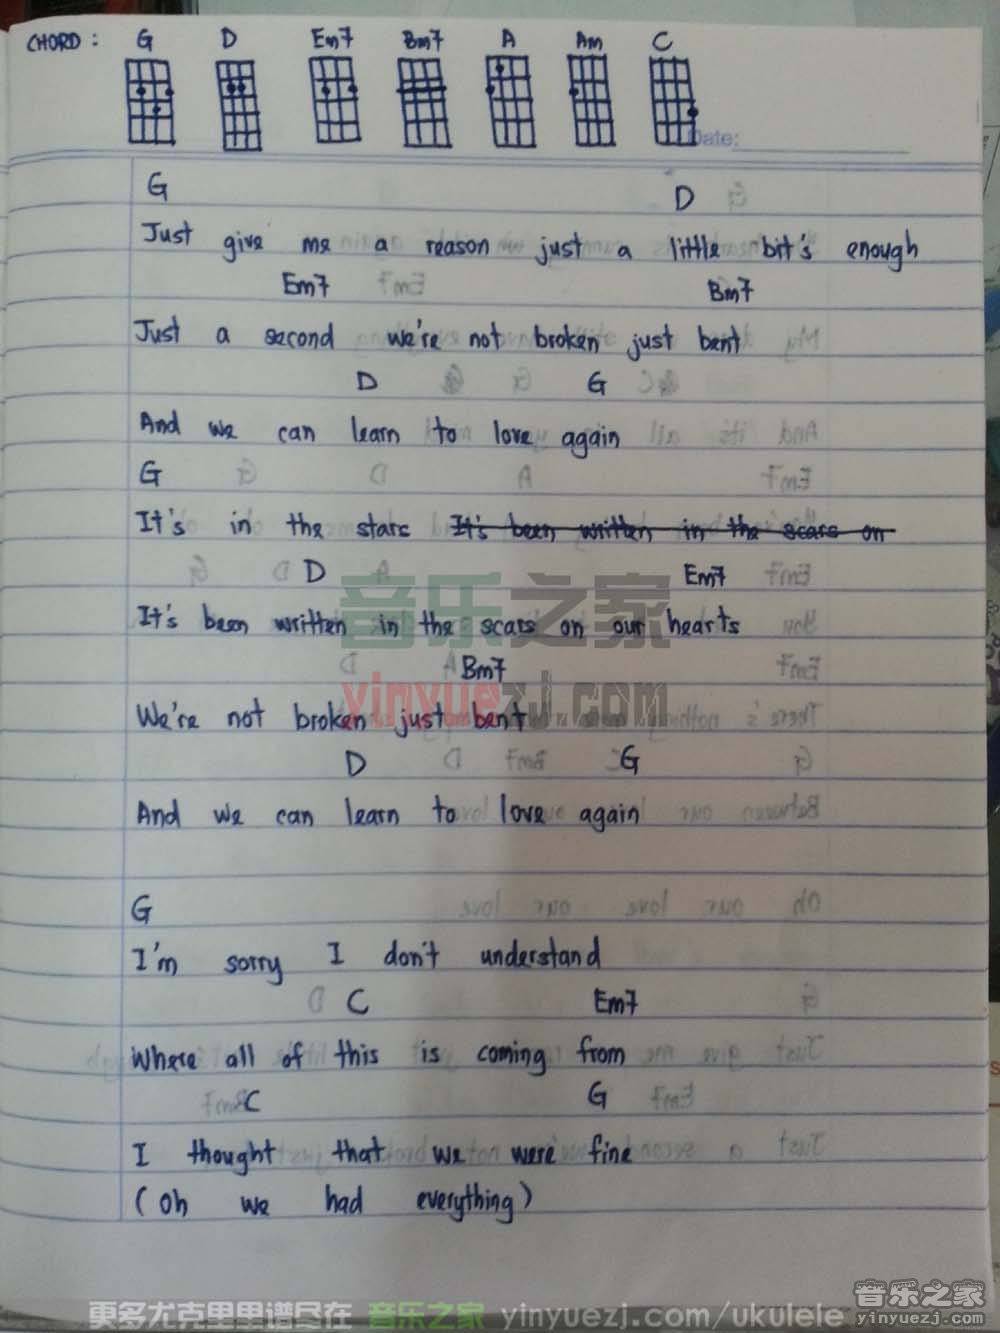 CHORD : G D Em7 Bm7 A Am C
Date:
G D
Just give me a reason just a little bit's enough
Em7 Bm7
Just a second we're not broken just bent
D G
And we can learn to love again
G
It's in the stars It's been written in the scars on
D Em7
It's been written in the scars on our hearts
Bm7
We're not broken just bent
D G
And we can learn to love again
G
I'm sorry I don't understand
C Em7
Where all of this is coming from
C G
I thought that we were fine
(Oh we had everything)
音乐之家
yinyuezj.com
更多尤克里里谱尽在 音乐之家 yinyuezj.com/ukulele
音乐之家
yinyuezj.com